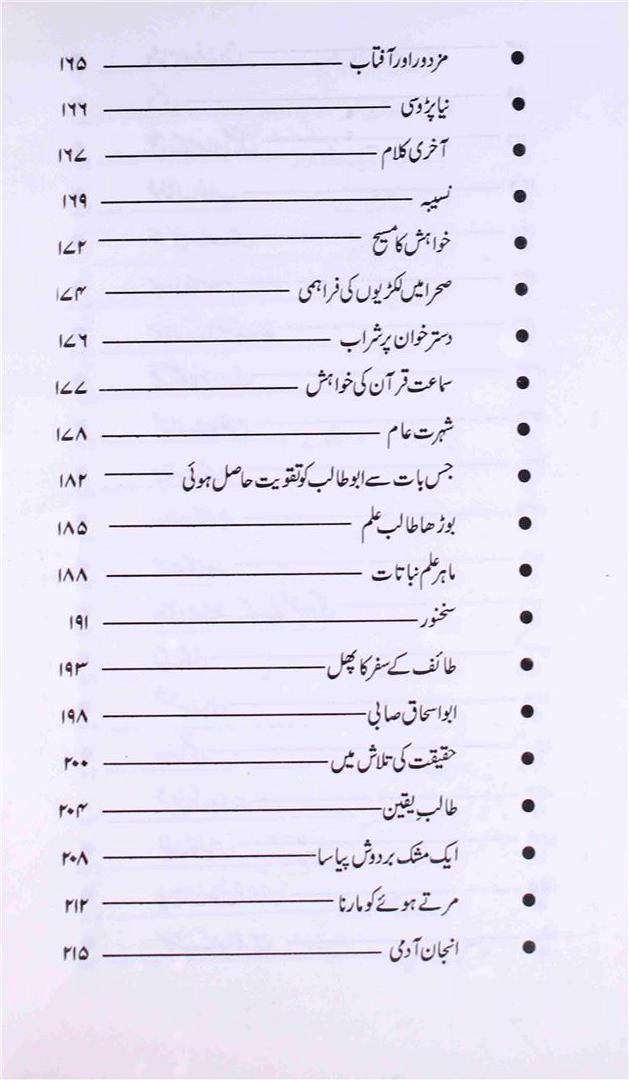 ● مزدور اور آفتاب ۱۶۵
● نیا پڑوسی ۱۶۶
● آخری کلام ۱۶۷
● نسیبہ ۱۶۹
● خواہش کا مسیح ۱۷۲
● صحرا میں لکڑیوں کی فراہمی ۱۷۴
● دسترخوان پر شراب ۱۷۶
● سماعت قرآن کی خواہش ۱۷۷
● شہرت عام ۱۷۸
● جس بات سے ابو طالب کو تقویت حاصل ہوئی ۱۸۲
● بوڑھا طالب علم ۱۸۵
● ماہر علم نباتات ۱۸۸
● سخنور ۱۹۱
● طائف کے سفر کا پھل ۱۹۳
● ابو اسحاق صابی ۱۹۸
● حقیقت کی تلاش میں ۲۰۰
● طالبِ یقین ۲۰۴
● ایک مشک بردوش پیاسا ۲۰۸
● مرتے ہوئے کو مارنا ۲۱۲
● انجان آدمی ۲۱۵